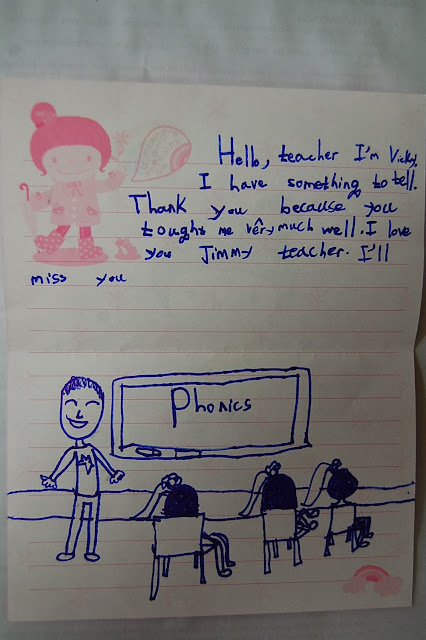 Hello, teacher I'm Vicky.
I have something to tell.
Thank you because you
tought me very much well. I love
you Jimmy teacher. I'll
miss you
Phonics